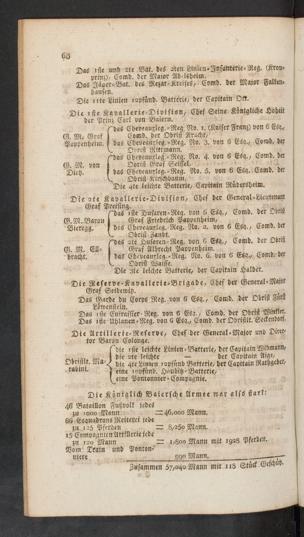 68
Das 1ste und 2te Bat. des 2ten Linien-Infanterie-Reg. (Kron-
prinz); Comd. der Major
Das Jäger-Bat. des Rezat-Kreises, Comd. der Major Falken-
hausen.
Die 11te Linien 12pfünd. Batterie, der Capitain Ott.
Die 1ste Kavallerie-Division, Chef Seine Königliche Hoheit
der Prinz Carl von Baiern.
G. M. Graf Pappenheim.
das Chevauxleg.-Reg. No. 1. (Kaiser Franz) von 6 Esq.,
Comd. der Obrist Kracht,
das Chevauxleg.-Reg. No. 3. von 6 Esq., Comd. der
Obrist
G. M. von Dietz.
das Chevauxleg.-Reg. No. 4. von 6 Esq., Comd. der
Obrist Graf Seissel.
das Chevauxleg.-Reg. No. 5. von 6 Esq., Comd. der
Obrist Kirschbaum.
Die 4te leichte Batterie, Capitain
Die 2te Kavallerie-Division, Chef der General-Lieutenant
Graf Preising.
G. M. Baron Vieregg.
das 1ste Husaren-Reg. von 6 Esq., Comd. der Obrist
Graf Friederich Pappenheim.
das Chevauxleg.-Reg. No. 2. von 6 Esq., Comd. der
Obrist Zandt.
G. M. Elbracht.
das 2te Husaren-Reg. von 6 Esq., Comd. der Obrist
Graf Albrecht Pappenheim.
das Chevauxleg.-Reg. No. 6. von 6 Esq., Comd. der
Obrist
Die 3te leichte Batterie, der Capitain Halder.
Die Reserve-Kavallerie-Brigade, Chef der General-Major
Graf
Das Garde du Corps Reg. von 6 Esq., Comd. der Obrist Fürst
Löwenstein.
Das 1ste Cuirassier-Reg. von 6 Esq., Comd. der Obrist
Das 1ste Uhlanen-Reg. von 6 Esq., Comd. der Obristlt. Seckendorf.
Die Artillerie-Reserve, Chef der General-Major und Direc-
tor Baron Colonge.
Obristlt. Marabini.
die 1ste leichte Linien-Batterie, der Capitain Widmann,
die 2te leichte — der Capitain
die 4te Linien 12pfünd. Batterie, der Capitain Rathgeber,
eine 10pfünd. Haubitz-Batterie,
eine Pontonnier-Compagnie.
Die Königlich Baiersche Armee war also stark:
46 Bataillon Fußvolk jedes
zu 1000 Mann = 46,000 Mann.
66 Esquadron Reiterei jedes
zu 125 Pferden = 8,250 Mann.
15 Compagnien Artillerie jede
zu 120 Mann = 1,800 Mann mit 1928 Pferden.
Vom Train und Ponton-
niere 990 Mann.
Zusammen 57,040 Mann mit 118 Stück Geschütz.